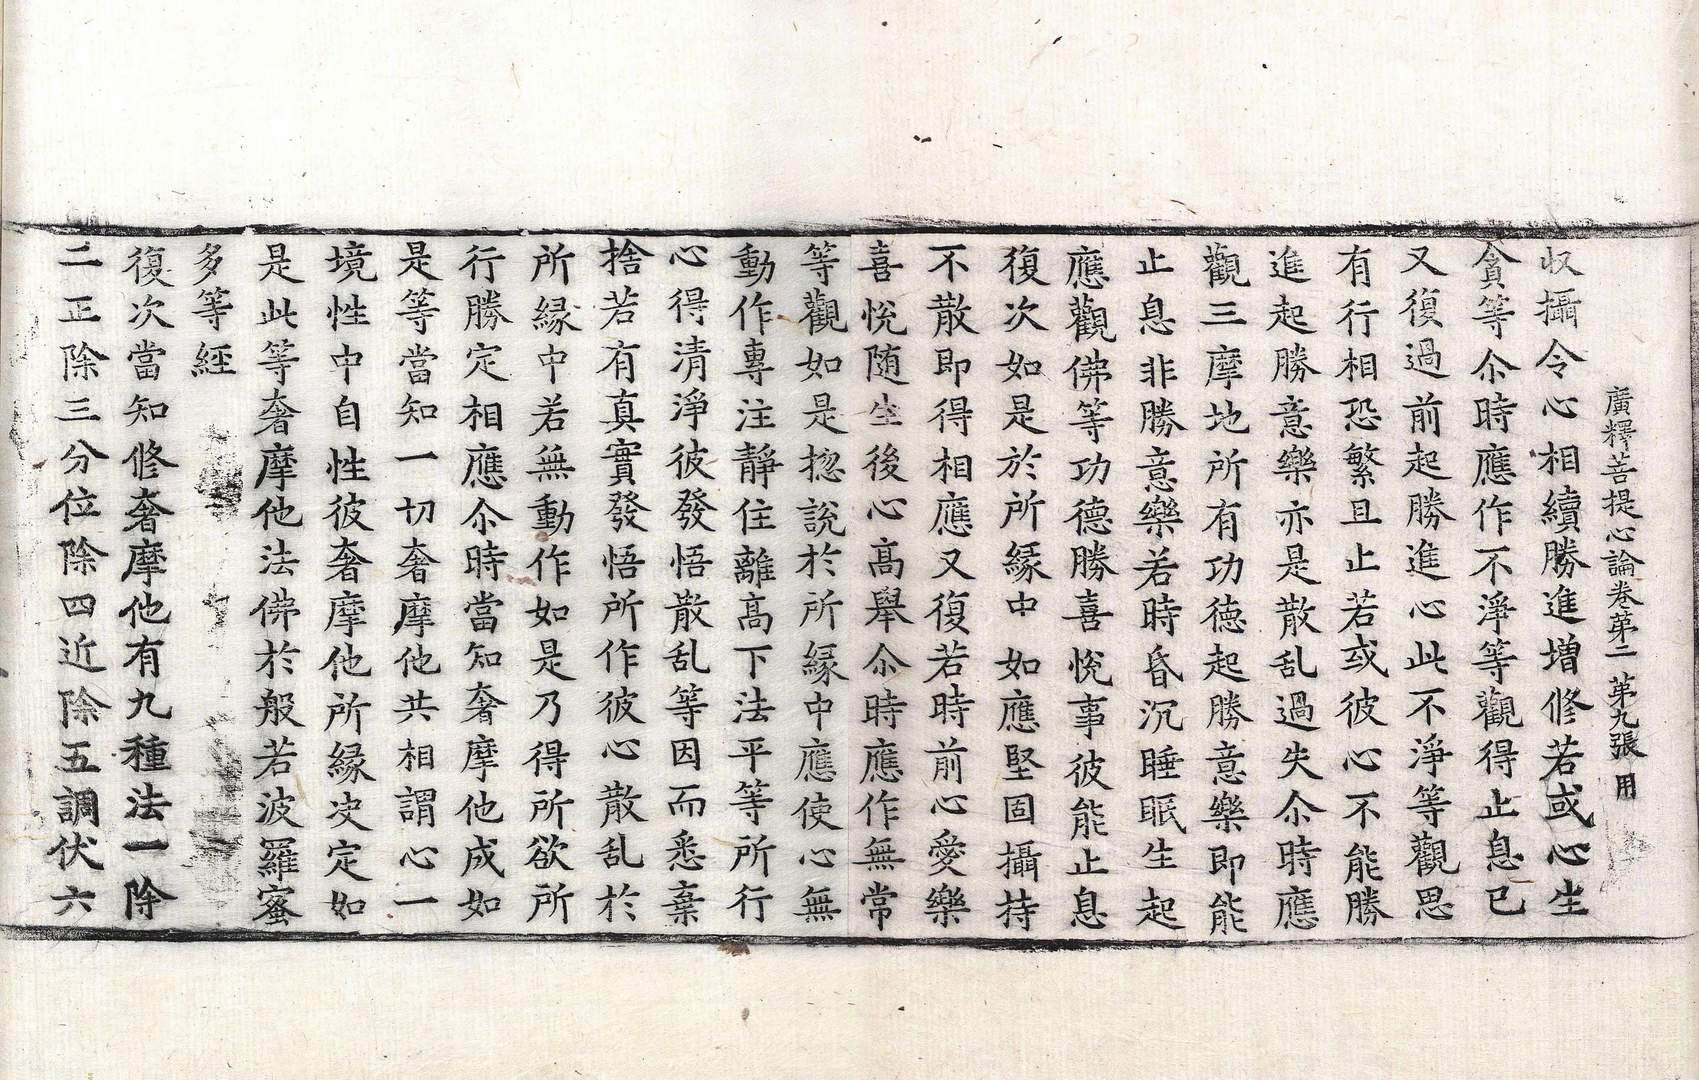 廣釋菩提心論卷第二 第九張 用
収攝令心相續勝進增修若或心生
貪等尒時應作不淨等觀得止息已
又復過前起勝進心此不淨等觀思
有行相恐繁且止若或彼心不能勝
進起勝意樂亦是散乱過失尒時應
觀三摩地所有功德起勝意樂即能
止息非勝意樂若時昏沉睡眠生起
應觀佛等功德勝喜悅事彼能止息
復次如是於所縁中如應堅固攝持
不散即得相應又復若時前心愛樂
喜悅随生後心高舉尒時應作無常
等觀如是揔說於所縁中應使心無
動作專注靜住離高下法平等所行
心得清淨彼發悟散乱等因而悉棄
捨若有真實發悟所作彼心散乱於
所縁中若無動作如是乃得所欲所
行勝定相應尒時當知奢摩他成如
是等當知一切奢摩他共相謂心一
境性中自性彼奢摩他所縁决定如
是此等奢摩他法佛於般若波羅蜜
多等經
復次當知修奢摩他有九種法一除
二正除三分位除四近除五調伏六